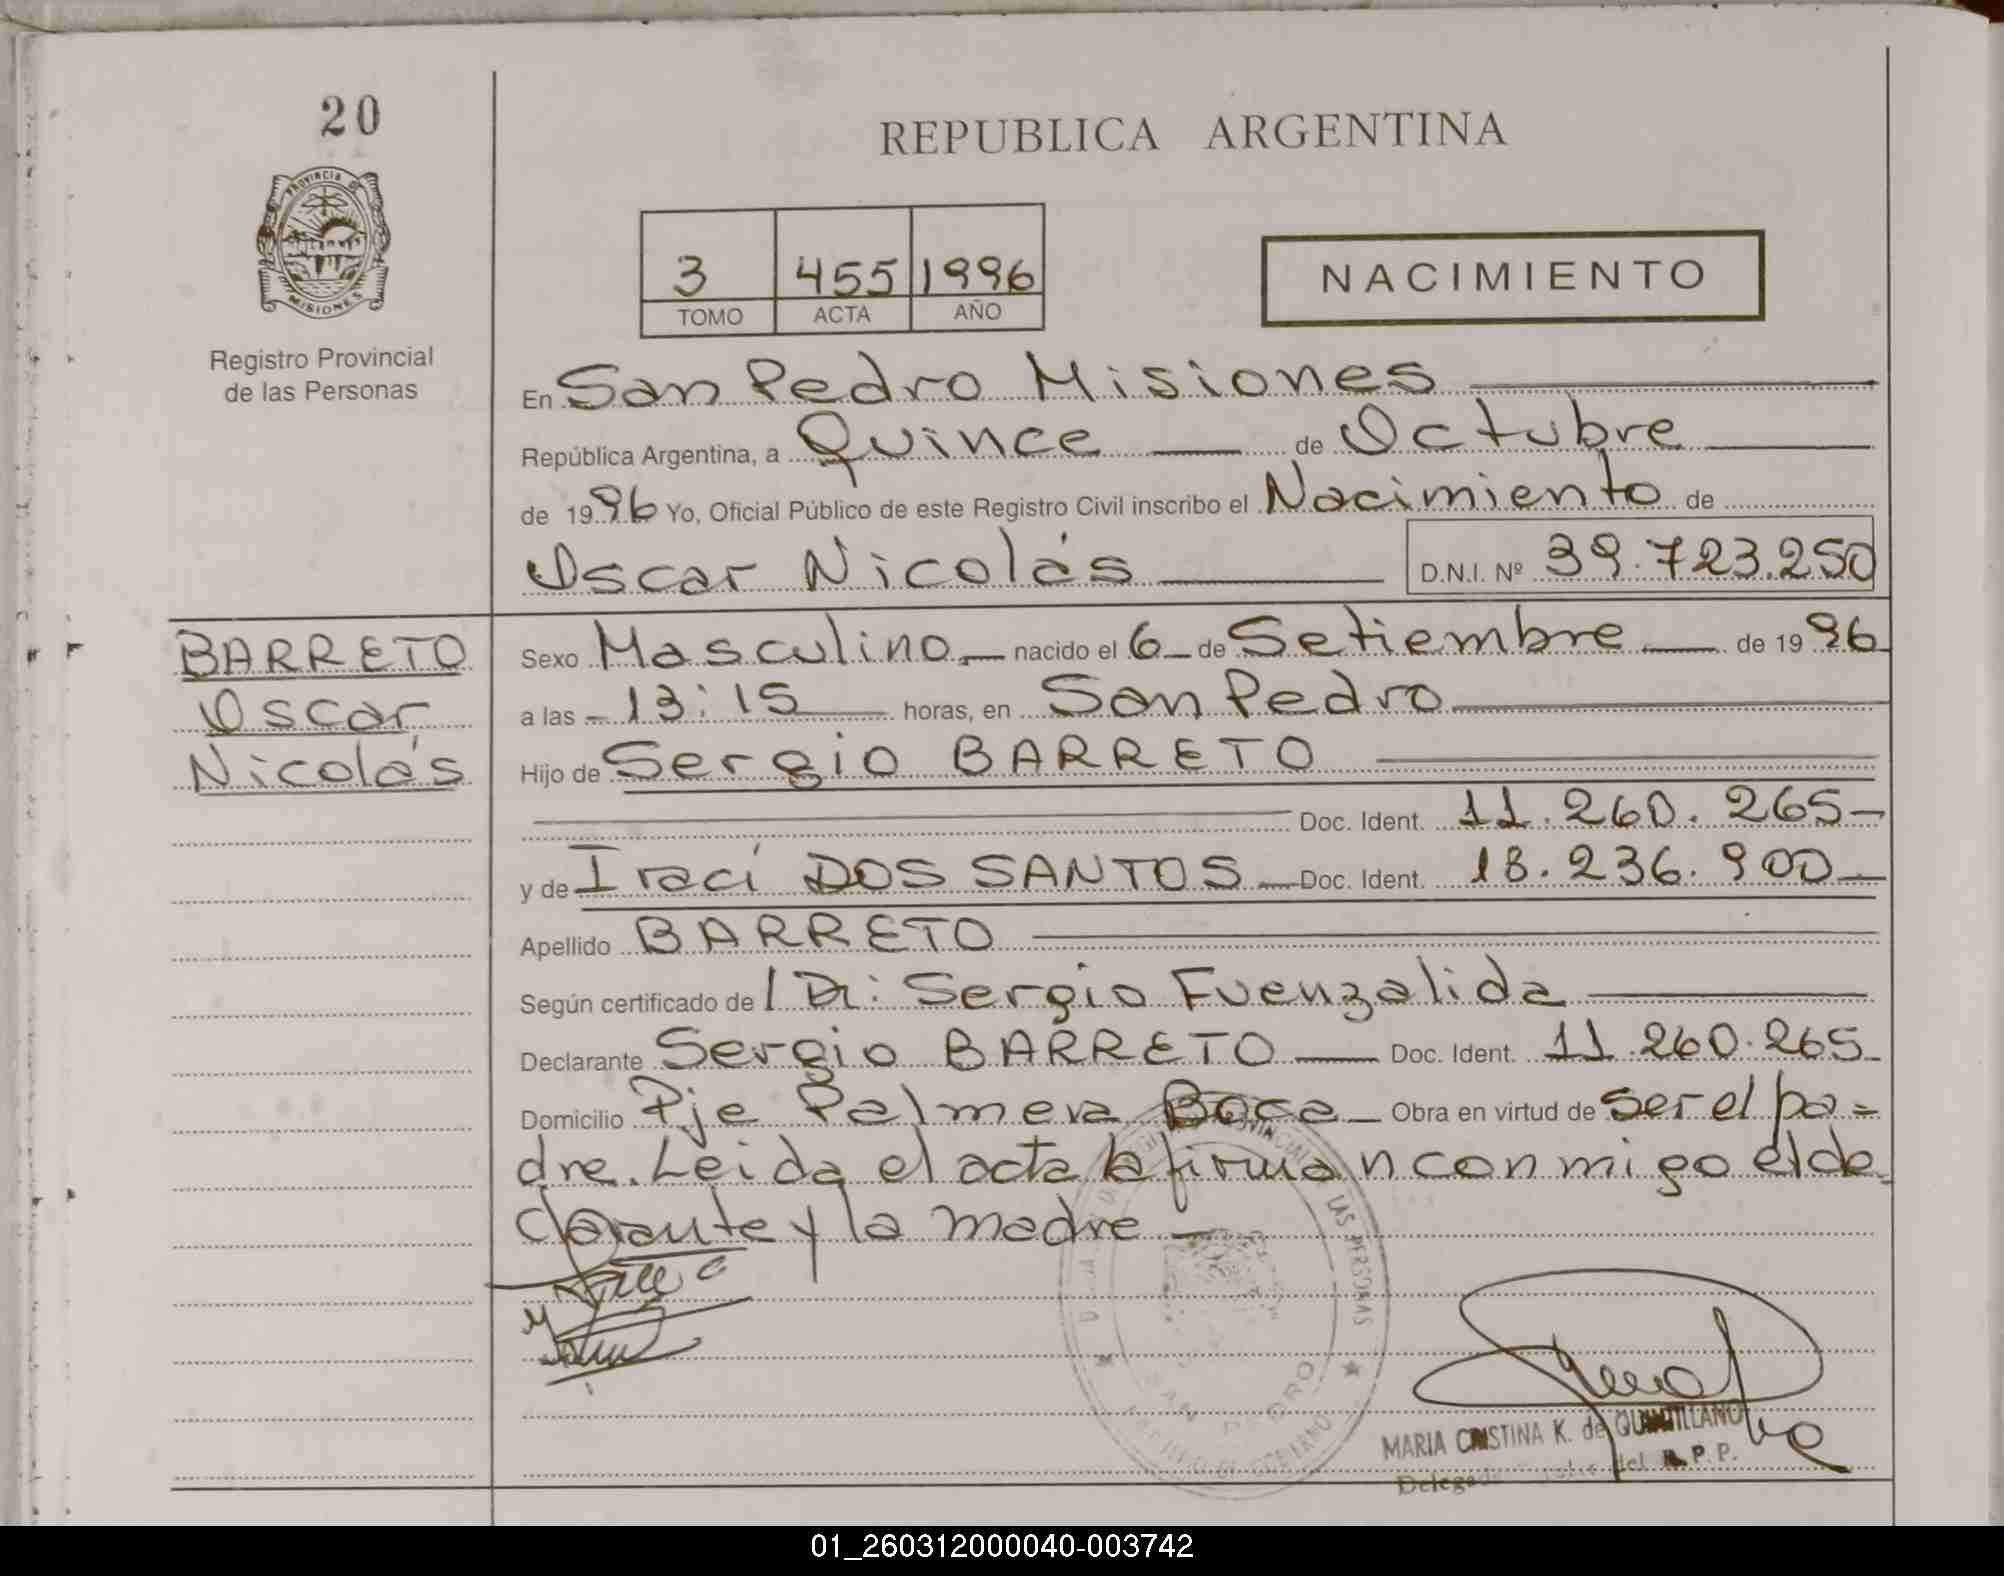 20
REPUBLICA ARGENTINA
PROVINCIA DE
MISIONES
3 455 1996
TOMO ACTA AÑO
NACIMIENTO
Registro Provincial
de las Personas
En San Pedro Misiones
República Argentina, a Quince de Octubre
de 1996 Yo, Oficial Público de este Registro Civil inscribo el Nacimiento de
Oscar Nicolás D.N.I. Nº 39.723.250
BARRETO
Oscar
Nicolás
Sexo Masculino nacido el 6 de Setiembre de 1996
a las 13:15 horas, en San Pedro
Hijo de Sergio BARRETO
Doc. Ident. 11.260.265
y de Iraci DOS SANTOS Doc. Ident. 18.236.900
Apellido BARRETO
Según certificado de l Dr: Sergio Fuenzalida
Declarante Sergio BARRETO Doc. Ident. 11.260.265
Domicilio Pje Palmera Boca Obra en virtud de ser el pa=
dre. Leida el acta la firman conmigo el de
clarante y la madre
LAS PERSONAS
SAN PEDRO
MARIA CRISTINA K. de QUINTILLANO
del R.P.P.
01_260312000040-003742